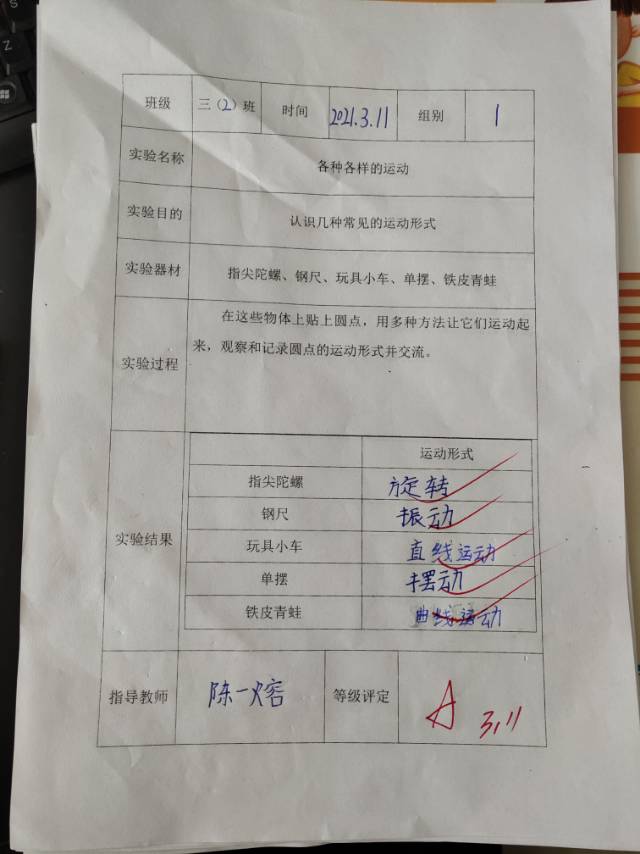 班级 三（2）班 时间 2021.3.11 组别 1
实验名称 各种各样的运动
实验目的 认识几种常见的运动形式
实验器材 指尖陀螺、钢尺、玩具小车、单摆、铁皮青蛙
在这些物体上贴上圆点，用多种方法让它们运动起
实验过程 来，观察和记录圆点的运动形式并交流。
运动形式
指尖陀螺 旋转
钢尺 振动
实验结果 玩具小车 直线运动
单摆 摆动
铁皮青蛙 曲线运动
指导教师 陈一熔 等级评定 A 3.11